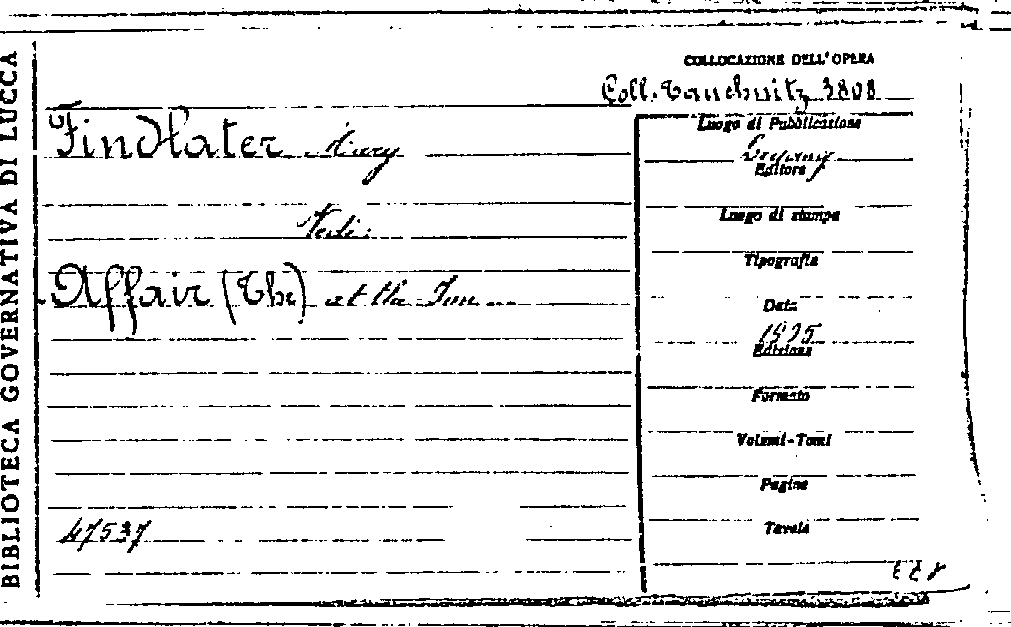 BIBLIOTECA GOVERNATIVA DI LUCCA
COLLOCAZIONE DELL'OPERA
Coll. Tauchnitz 3808
Findlater Mary
Luogo di Pubblicazione
Editore
Vedi:
Luogo di stampa
Tipografia
Affair (The) at the Inn
Data
Edizione
Formato
Volumi-Tomi
Pagine
47537
Tavole